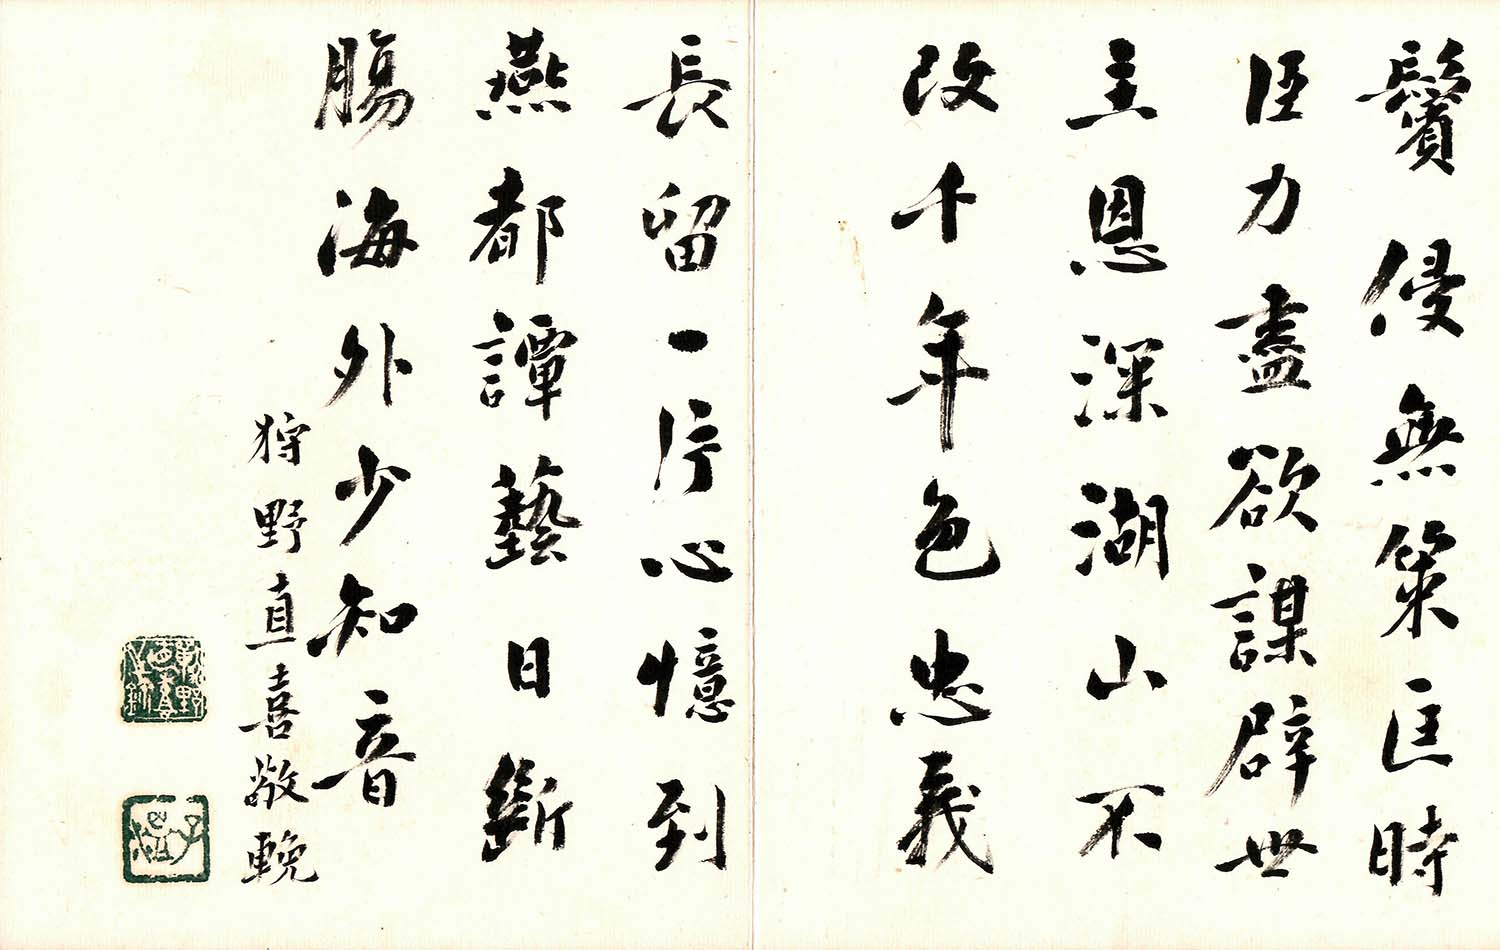 鬢侵無策匡時
臣力盡欲謀辟世
主恩深湖山不
改千年色忠義
長留一片心憶到
燕都譚藝日斷
腸海外少知音
狩野直喜敬輓